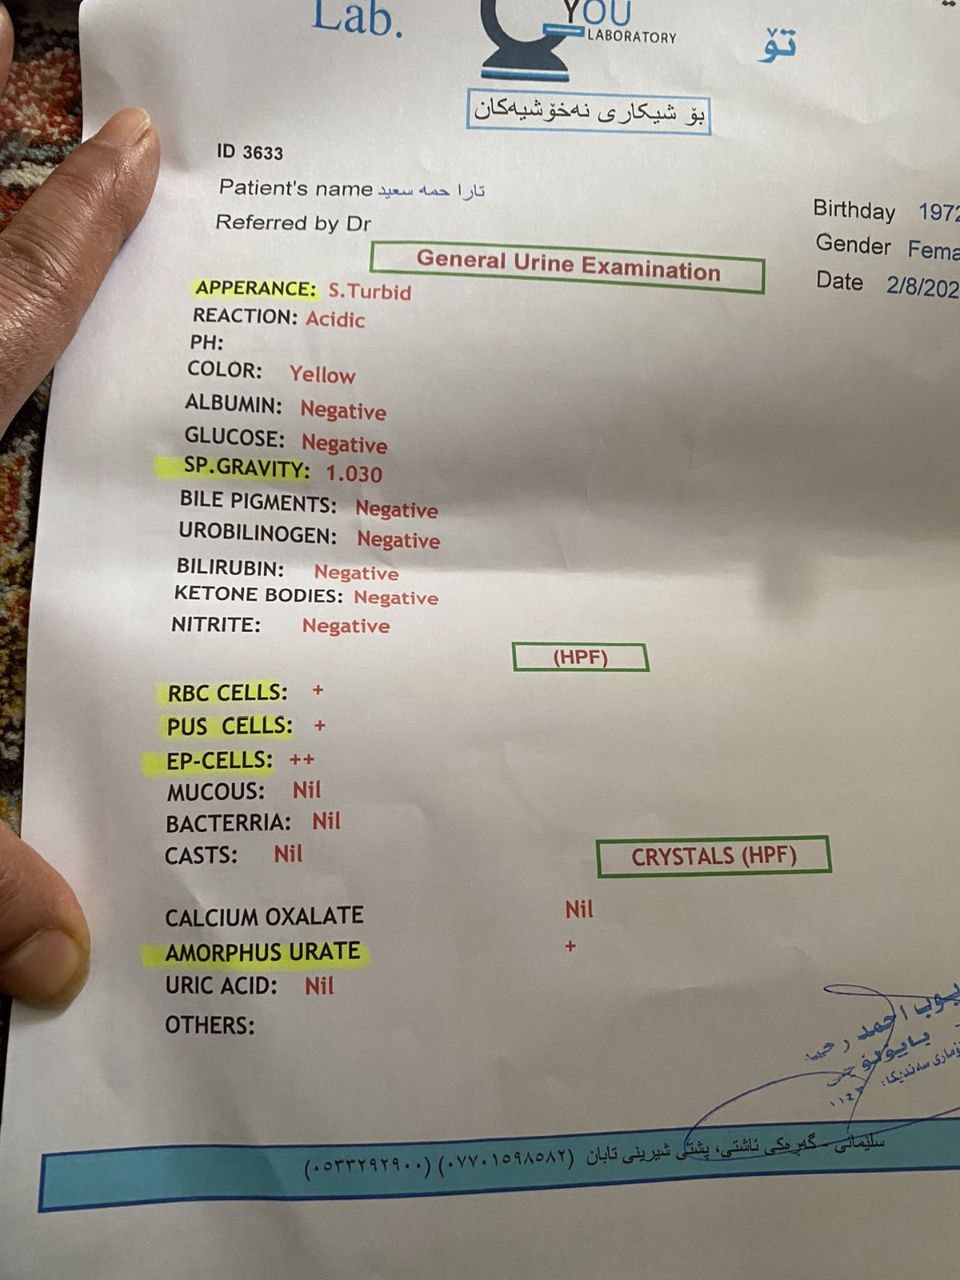 Lab.
YOU
LABORATORY
تۆ
بۆ شیکاری نەخۆشیەکان
ID 3633
Patient's name تارا حمه سعيد
Referred by Dr
Birthday 1972
Gender Fema
Date 2/8/202
General Urine Examination
APPERANCE: S.Turbid
REACTION: Acidic
PH:
COLOR: Yellow
ALBUMIN: Negative
GLUCOSE: Negative
SP.GRAVITY: 1.030
BILE PIGMENTS: Negative
UROBILINOGEN: Negative
BILIRUBIN: Negative
KETONE BODIES: Negative
NITRITE: Negative
(HPF)
RBC CELLS: +
PUS CELLS: +
EP-CELLS: ++
MUCOUS: Nil
BACTERRIA: Nil
CASTS: Nil
CRYSTALS (HPF)
CALCIUM OXALATE Nil
AMORPHUS URATE +
URIC ACID: Nil
OTHERS:
احمد
سەندیکا: ١١٤٢
سلێمانی - گەڕەکی ئاشتی، پشتی شیرینی تابان (٠٧٧٠١٥٩٨٥٨٢) (٠٥٣٣٢٩٢٩٠٠)